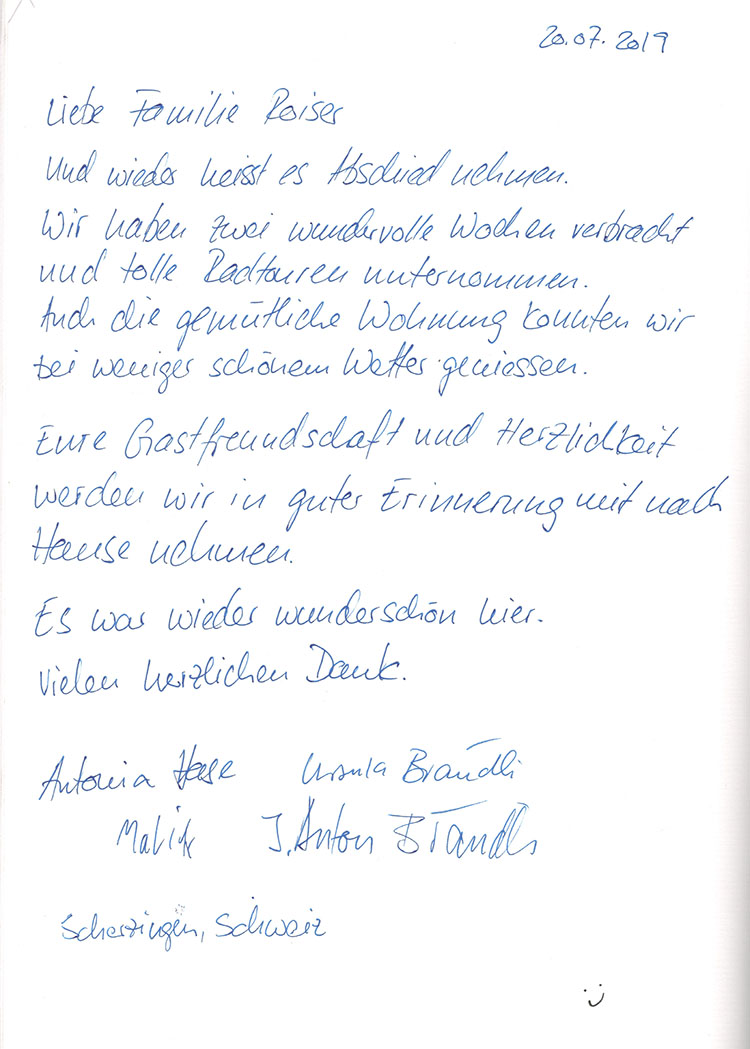 20.07.2019
Liebe Familie Roiser
Und wieder heisst es Abschied nehmen.
Wir haben zwei wundervolle Wochen verbracht
und tolle Radtouren unternommen.
Auch die gemütliche Wohnung konnten wir
bei weniger schönem Wetter geniessen.
Eure Gastfreundschaft und Herzlichkeit
werden wir in guter Erinnerung mit nach
Hause nehmen.
Es war wieder wunderschön hier.
Vielen herzlichen Dank.
Antonia Ursula Brändli
J. Anton Brändli
Scherzingen, Schweiz